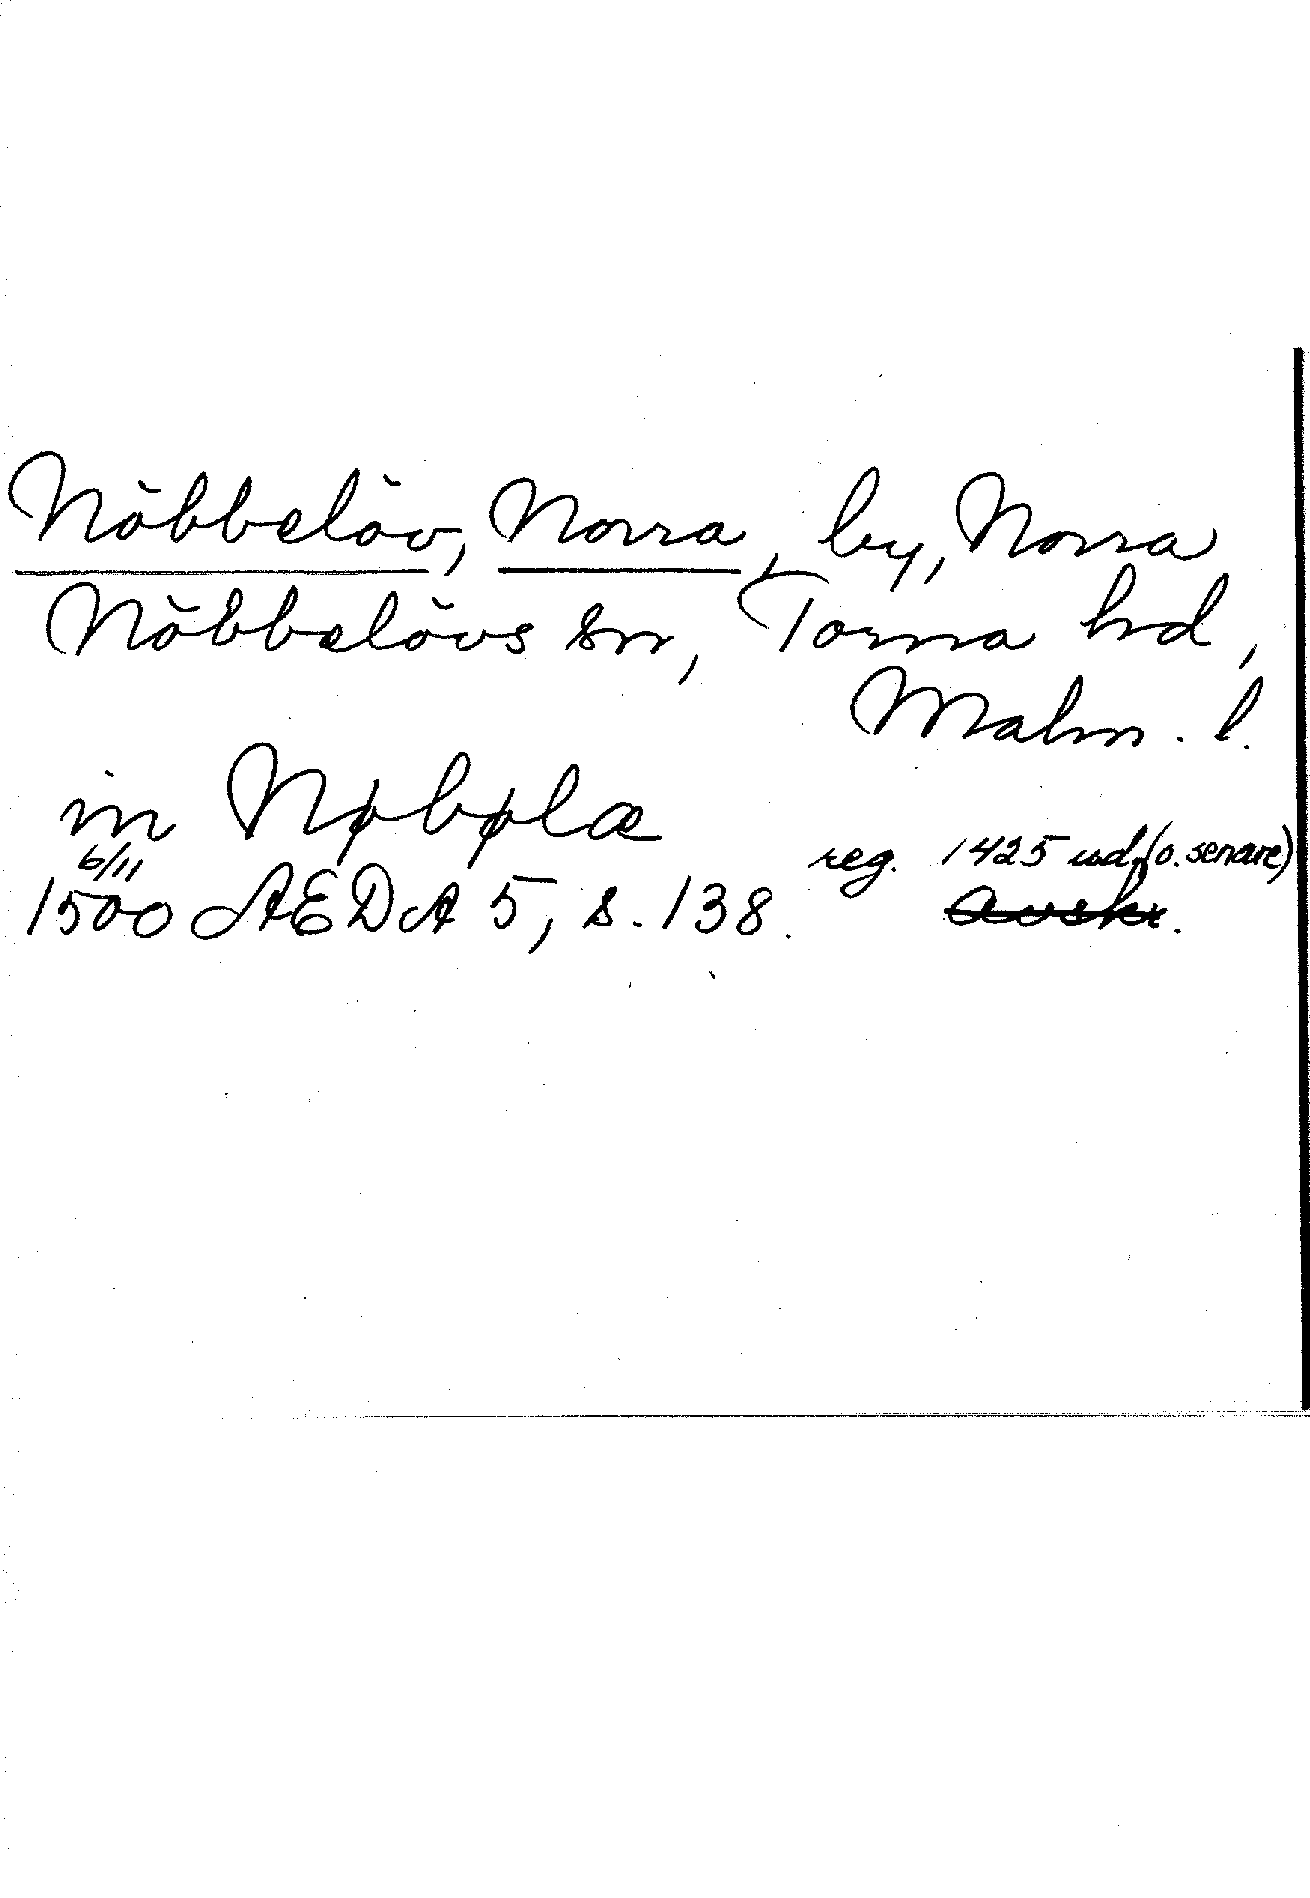 Nöbbelöv, Norra, by, Norra
Nöbbelövs sn, Torna hd,
Malm. l.
in Nøbølæ
6/11 reg. 1425 (o. senare)
1500 AEDA 5, s. 138. avskr.